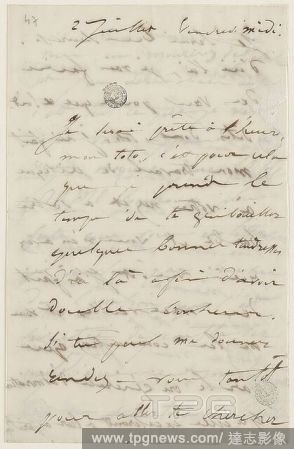 47
2 juillet Vendredi midi.
Je serai prête à l'heure,
mon toto, c'est pour cela
que je prends le
temps de te gribouiller
quelques bonnes tendresses
d'ici là afin d'avoir
double bonheur.
Si tu peux me donner
rendez-vous tantôt
pour aller te chercher
TPG
www.tpgnews.com/ 達志影像